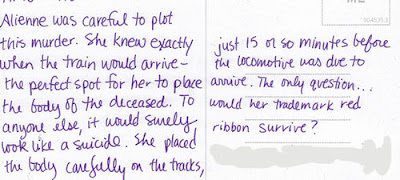 Alienne was careful to plot
this murder. She knew exactly
when the train would arrive-
the perfect spot for her to place
the body of the deceased. To
anyone else, it would surely
look like a suicide. She placed
the body carefully on the tracks,
just 15 or so minutes before
the locomotive was due to
arrive. The only question...
would her trademark red
ribbon survive?